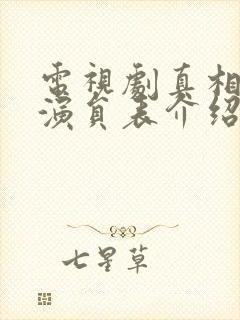 電視劇真相
演員表介紹
七星草